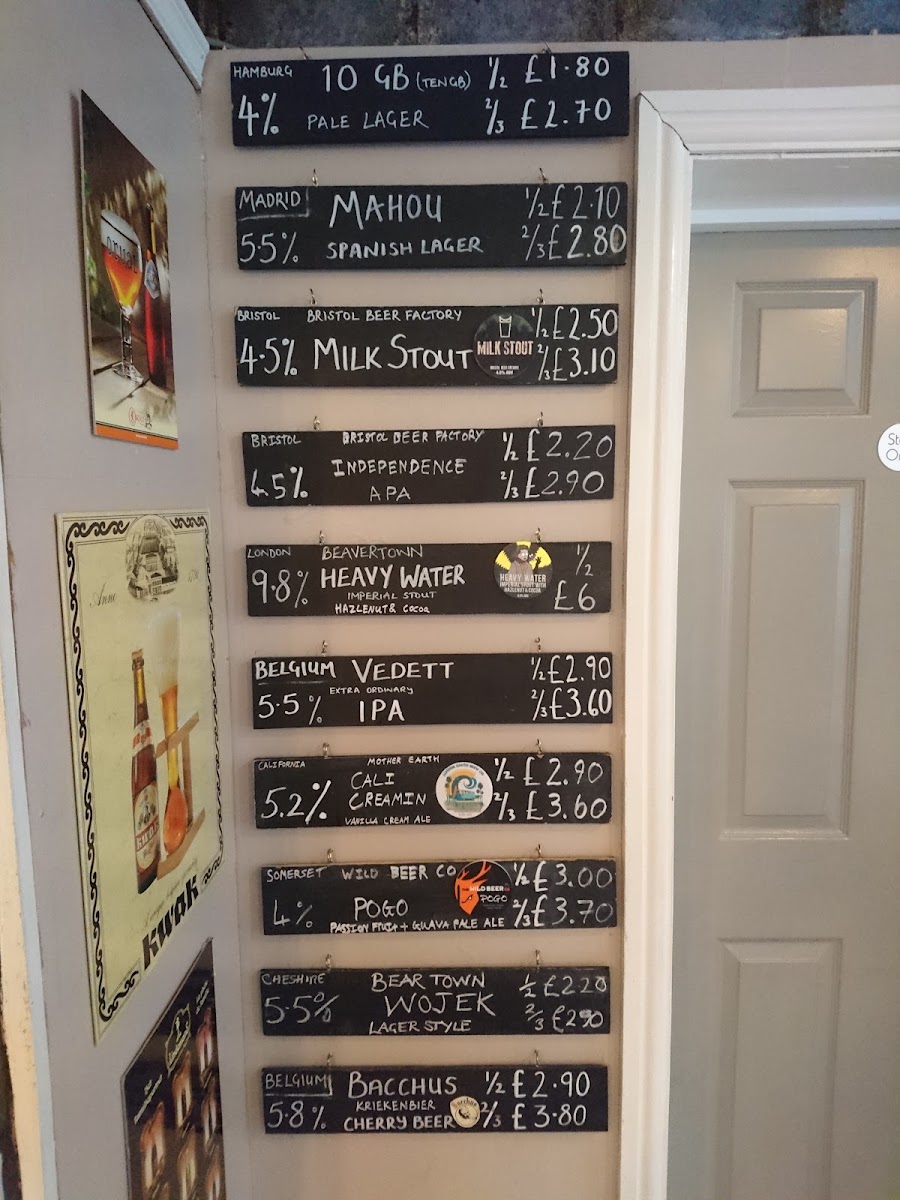 HAMBURG 10 GB (TEN GB) 1/2 £1.80
4% PALE LAGER 2/3 £2.70
MADRID MAHOU 1/2 £2.10
5.5% SPANISH LAGER 2/3 £2.80
BRISTOL BRISTOL BEER FACTORY 1/2 £2.50
4.5% MILK STOUT 2/3 £3.10
MILK STOUT
BRISTOL BRISTOL BEER FACTORY 1/2 £2.20
4.5% INDEPENDENCE 2/3 £2.90
APA
LONDON BEAVERTOWN 1/2
9.8% HEAVY WATER £6
IMPERIAL STOUT
HAZLENUT & COCOA
HEAVY WATER
IMPERIAL STOUT WITH
HAZLENUT & COCOA
BELGIUM VEDETT 1/2 £2.90
EXTRA ORDINARY
5.5% IPA 2/3 £3.60
CALIFORNIA MOTHER EARTH 1/2 £2.90
CALI
5.2% CREAMIN 2/3 £3.60
VANILLA CREAM ALE
SOMERSET WILD BEER CO 1/2 £3.00
4% POGO 2/3 £3.70
PASSION FRUIT + GUAVA PALE ALE
WILD BEER CO
POGO
CHESHIRE BEAR TOWN 1/2 £2.20
5.5% WOJEK 2/3 £2.90
LAGER STYLE
BELGIUM BACCHUS 1/2 £2.90
KRIEKENBIER
5.8% CHERRY BEER 2/3 £3.80
Anno
kwak
St
O